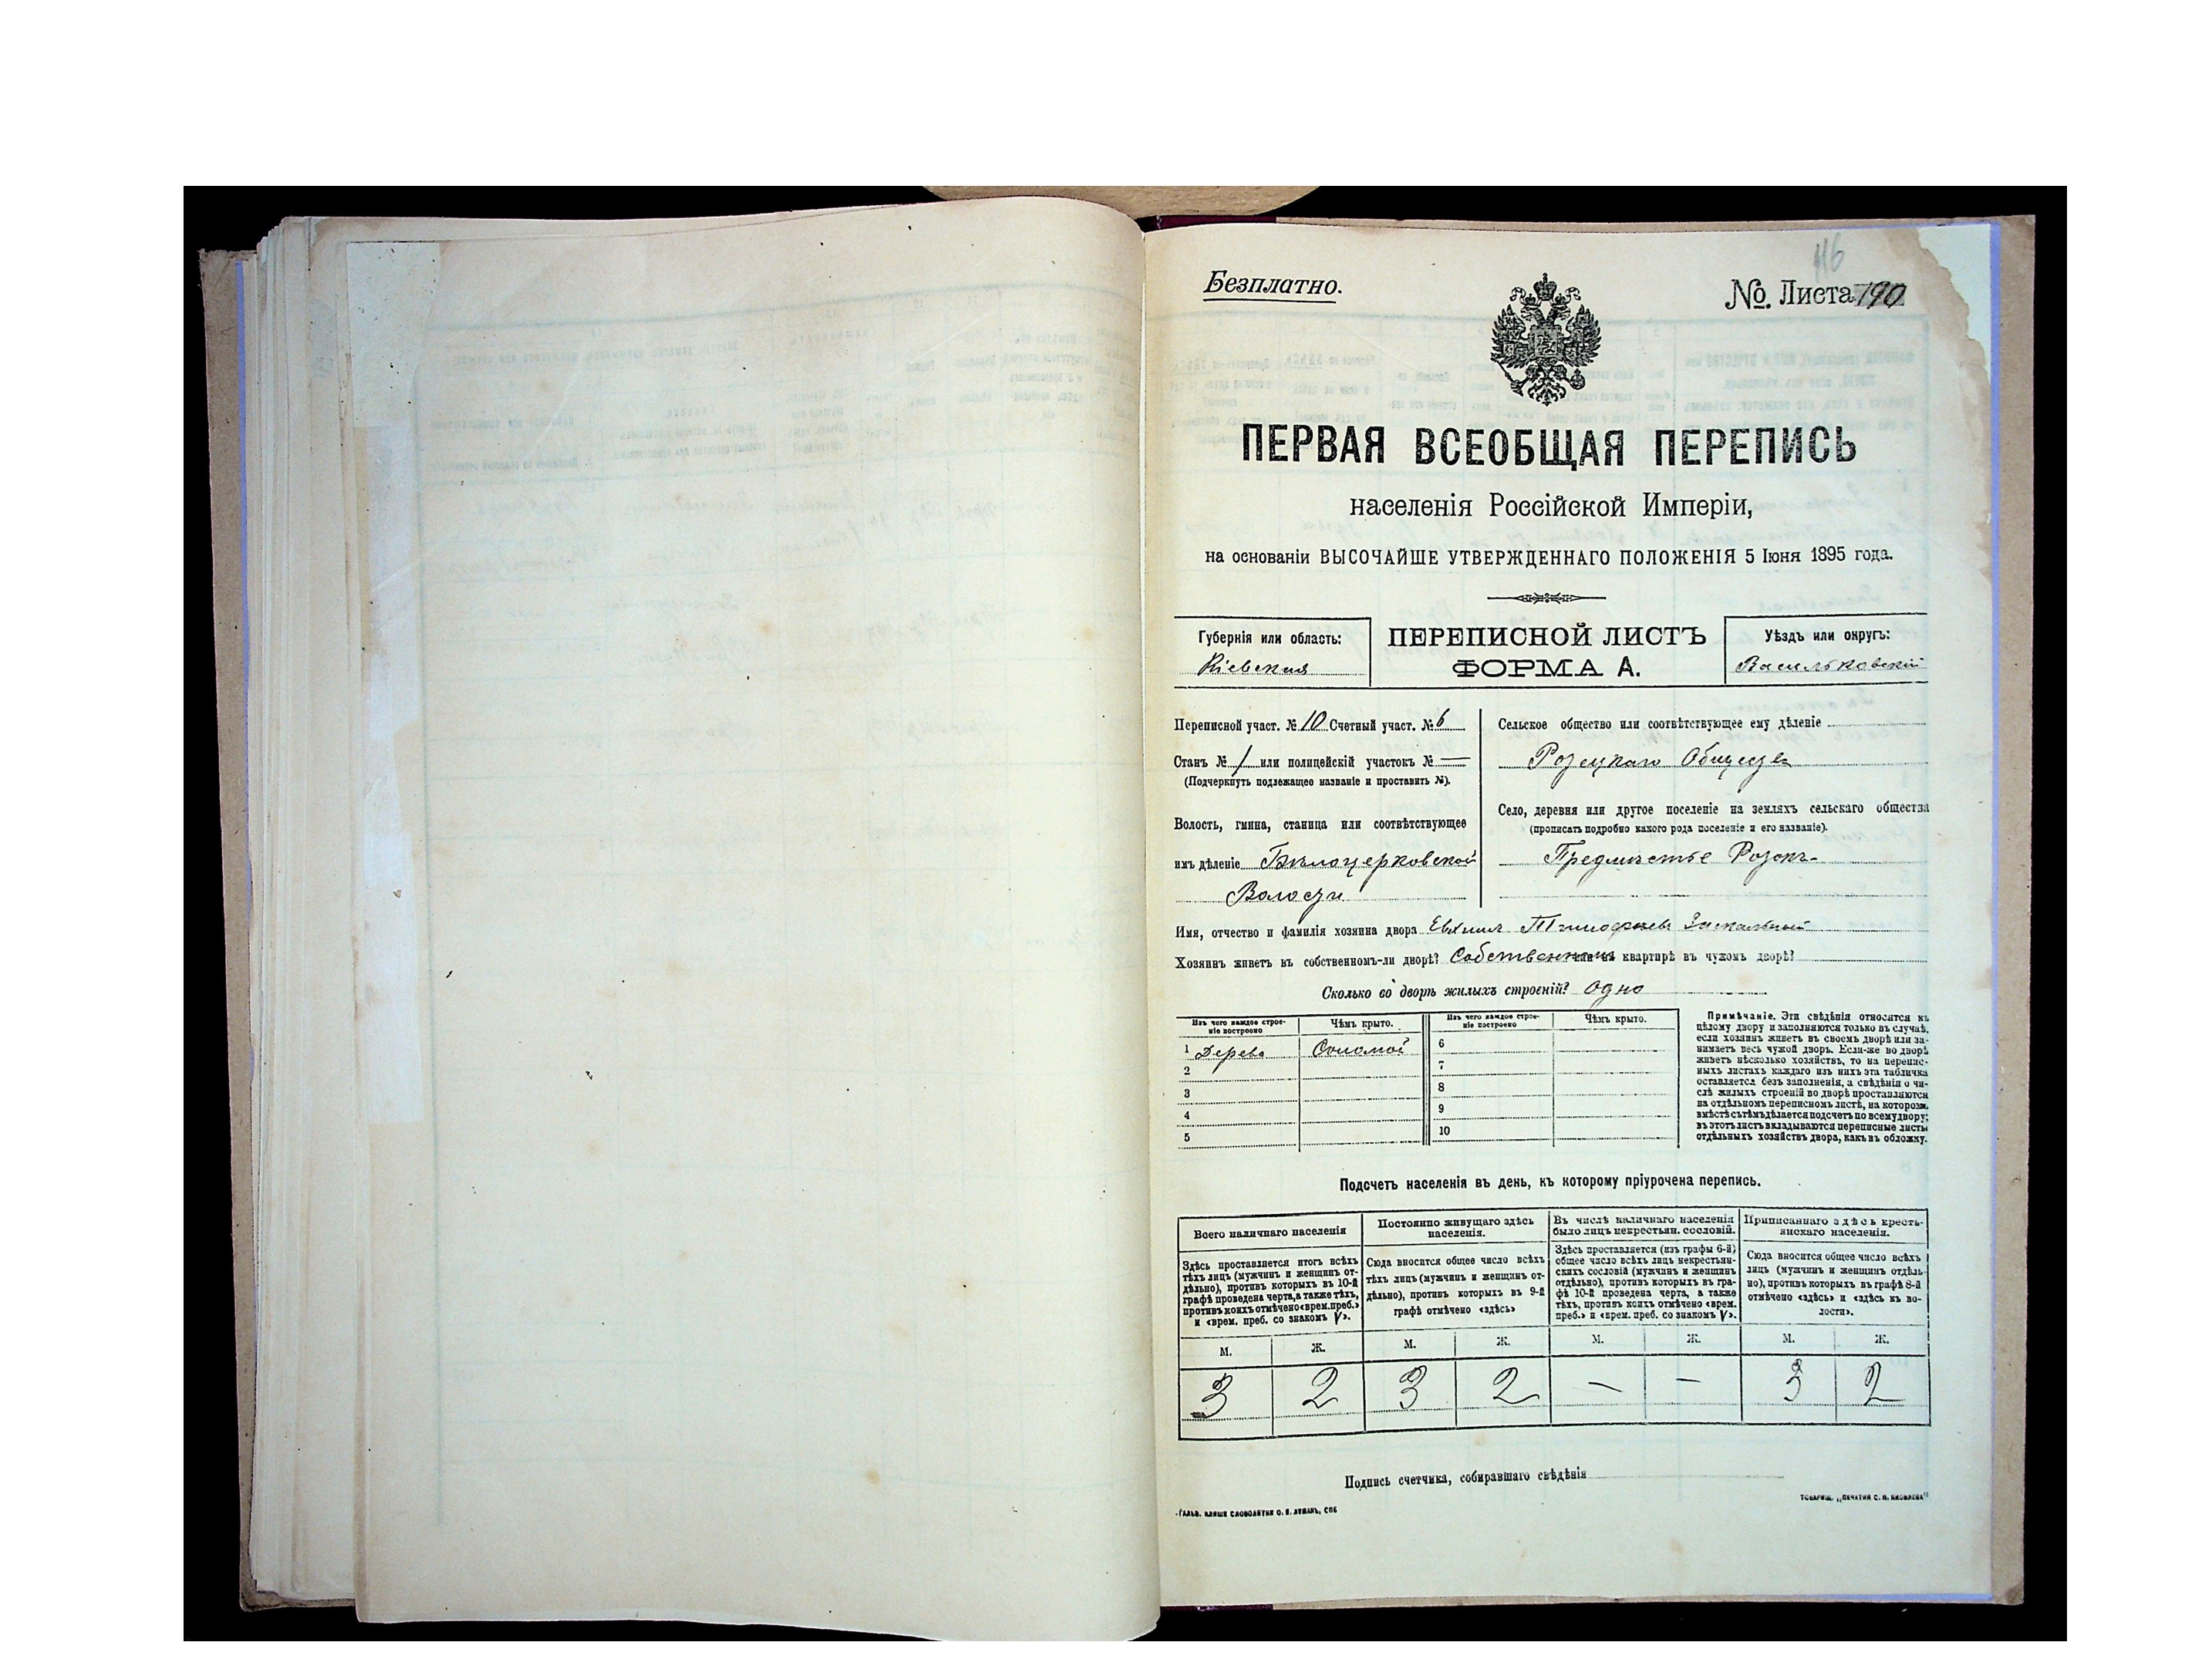 116
Безплатно.
№. Листа 190
ПЕРВАЯ ВСЕОБЩАЯ ПЕРЕПИСЬ
населенія Россійской Имперіи,
на основаніи ВЫСОЧАЙШЕ УТВЕРЖДЕННАГО ПОЛОЖЕНІЯ 5 Іюня 1895 года.
Губернія или область:
Кіевская
ПЕРЕПИСНОЙ ЛИСТЪ
ФОРМА А.
Уѣздъ или округъ:
Васильковскій
Переписной участ. № 10 Счетный участ. № 6
Станъ № 1 или полицейскій участокъ № —
(Подчеркнуть подлежащее названіе и проставить №).
Волость, гмина, станица или соотвѣтствующее
имъ дѣленіе Бѣлоцерковской
Волости
Сельское общество или соотвѣтствующее ему дѣленіе
Розецкаго Общества
Село, деревня или другое поселеніе на земляхъ сельскаго общества
(прописать подробно какого рода поселеніе и его названіе).
Предмѣстье
Имя, отчество и фамилія хозяина двора Тимофѣевъ
Хозяинъ живетъ въ собственномъ-ли дворѣ? Собственномъ квартирѣ въ чужомъ дворѣ?
Сколько во дворѣ жилыхъ строеній? Одно
Изъ чего каждое строе-
ніе построено
Чѣмъ крыто.
Изъ чего каждое строе-
ніе построено
Чѣмъ крыто.
1 Дерева Соломой
2
3
4
5
6
7
8
9
10
Примѣчаніе. Эти свѣдѣнія относятся къ
цѣлому двору и заполняются только въ случаѣ,
если хозяинъ живетъ въ своемъ дворѣ или за-
нимаетъ весь чужой дворъ. Если-же во дворѣ
живетъ нѣсколько хозяйствъ, то на перепис-
ныхъ листахъ каждаго изъ нихъ эта табличка
оставляется безъ заполненія, а свѣдѣнія о чи-
слѣ жилыхъ строеній во дворѣ проставляются
на отдѣльномъ переписномъ листѣ, на которомъ
вмѣстѣ съ тѣмъ дѣлается подсчетъ по всему двору;
въ этотъ листъ вкладываются переписные листы
отдѣльныхъ хозяйствъ двора, какъ въ обложку.
Подсчетъ населенія въ день, къ которому пріурочена перепись.
Всего наличнаго населенія
Здѣсь проставляется итогъ всѣхъ
тѣхъ лицъ (мужчинъ и женщинъ от-
дѣльно), противъ которыхъ въ 10-й
графѣ проведена черта, а также тѣхъ,
противъ коихъ отмѣчено «врем. преб.»
и «врем. преб. со знакомъ V».
Постоянно живущаго здѣсь
населенія.
Сюда вносится общее число всѣхъ
тѣхъ лицъ (мужчинъ и женщинъ от-
дѣльно), противъ которыхъ въ 9-й
графѣ отмѣчено «здѣсь»
Въ числѣ наличнаго населенія
было лицъ некрестьян. сословій.
Здѣсь проставляется (изъ графы 6-й)
общее число всѣхъ лицъ некрестьян-
скихъ сословій (мужчинъ и женщинъ
отдѣльно), противъ которыхъ въ гра-
фѣ 10-й проведена черта, а также
тѣхъ, противъ коихъ отмѣчено «врем.
преб.» и «врем. преб. со знакомъ V».
Приписаннаго здѣсь кресть-
янскаго населенія.
Сюда вносится общее число всѣхъ
лицъ (мужчинъ и женщинъ отдѣль-
но), противъ которыхъ въ графѣ 8-й
отмѣчено «здѣсь» и «здѣсь къ во-
лости».
М. Ж. М. Ж. М. Ж. М. Ж.
3 2 3 2 — — 3 2
Подпись счетчика, собиравшаго свѣдѣнія
Гальв. клише словолитни О. И. Леманъ, СПБ
Товарищ. „Печатня С. П. Яковлева“